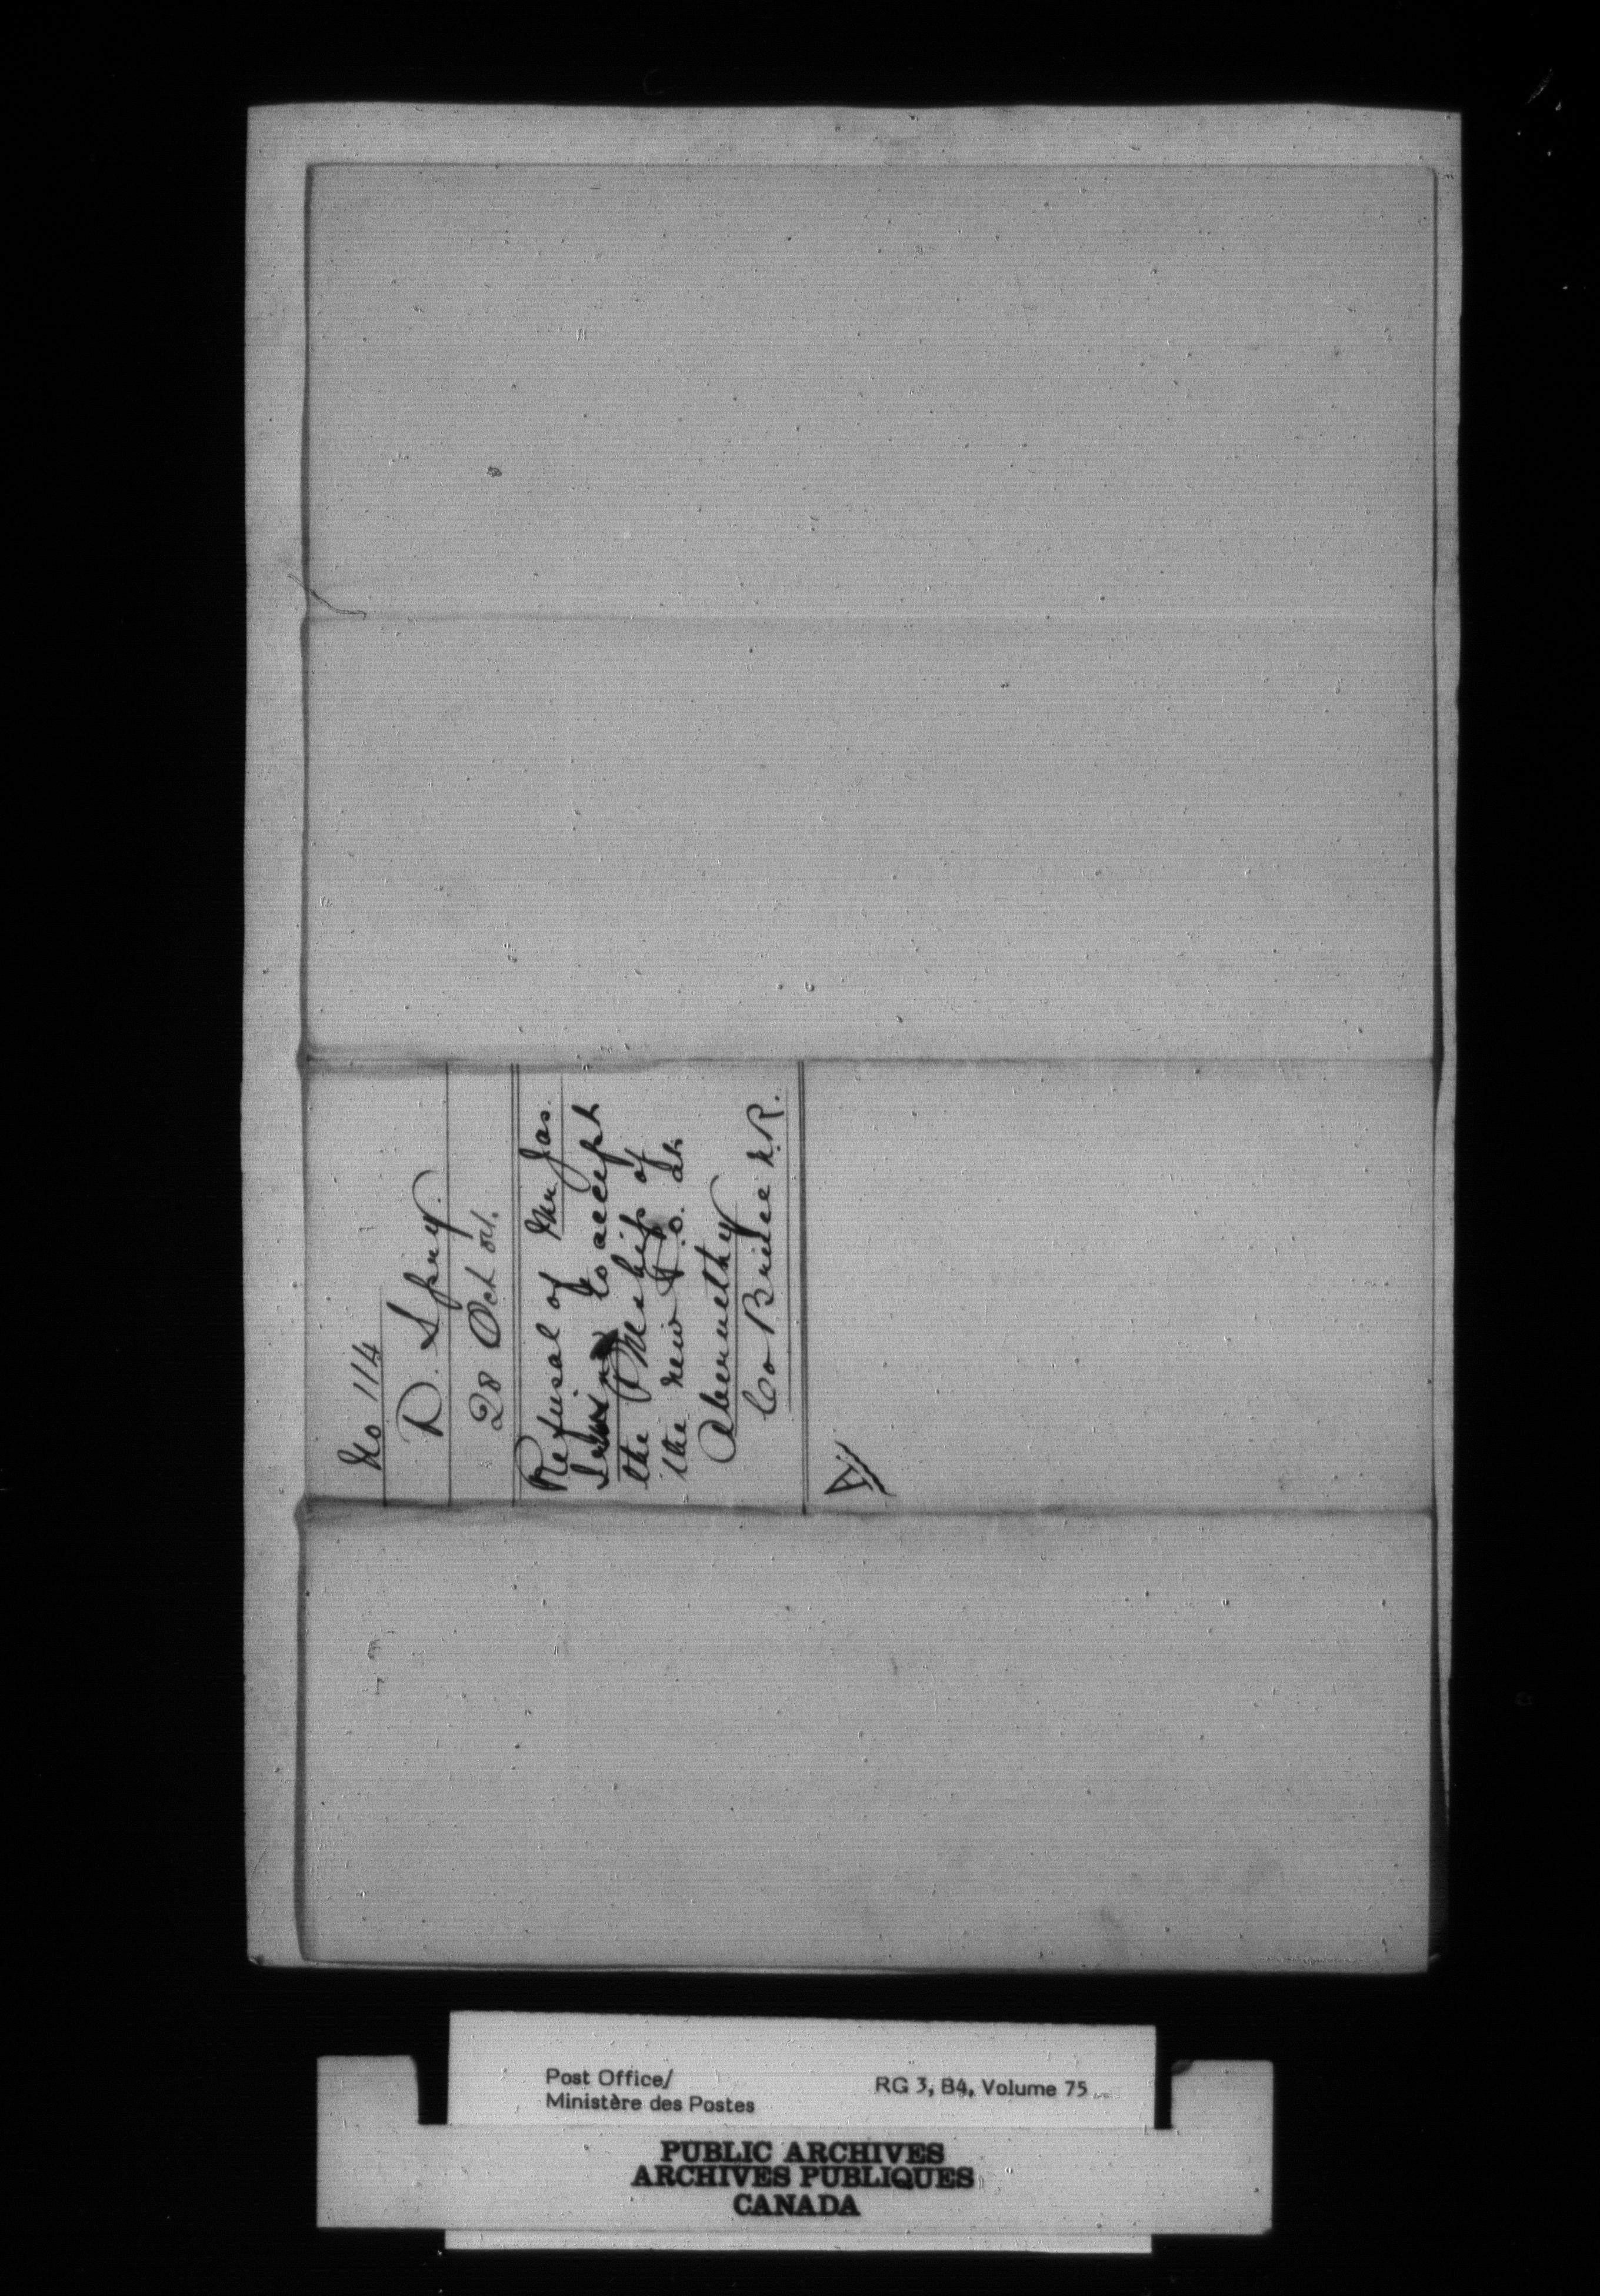 No 114
D. Spry
28 Oct
Refusal of Mr. Jas.
Irwin to accept
the PMship of
the new P.O. at
Abernethy
Co Bruce N.R.
Post Office/
Ministère des Postes
RG 3, B4, Volume 75
PUBLIC ARCHIVES
ARCHIVES PUBLIQUES
CANADA